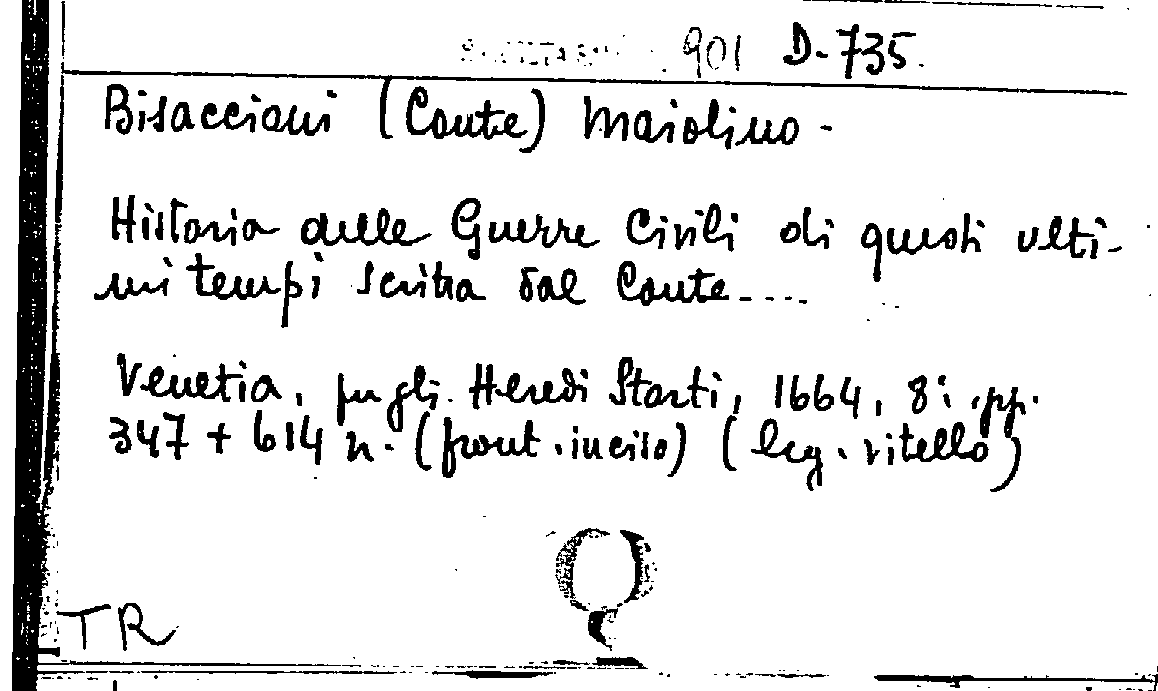 901 D-735.
Bisaccioni (Conte) Maiolino -
Historia delle Guerre Civili di questi ulti-
mi tempi scritta dal Conte....
Venetia, pr gli. Heredi Storti, 1664, 8: pp.
347 + 614 n. (front. inciso) (leg. vitello)
TR